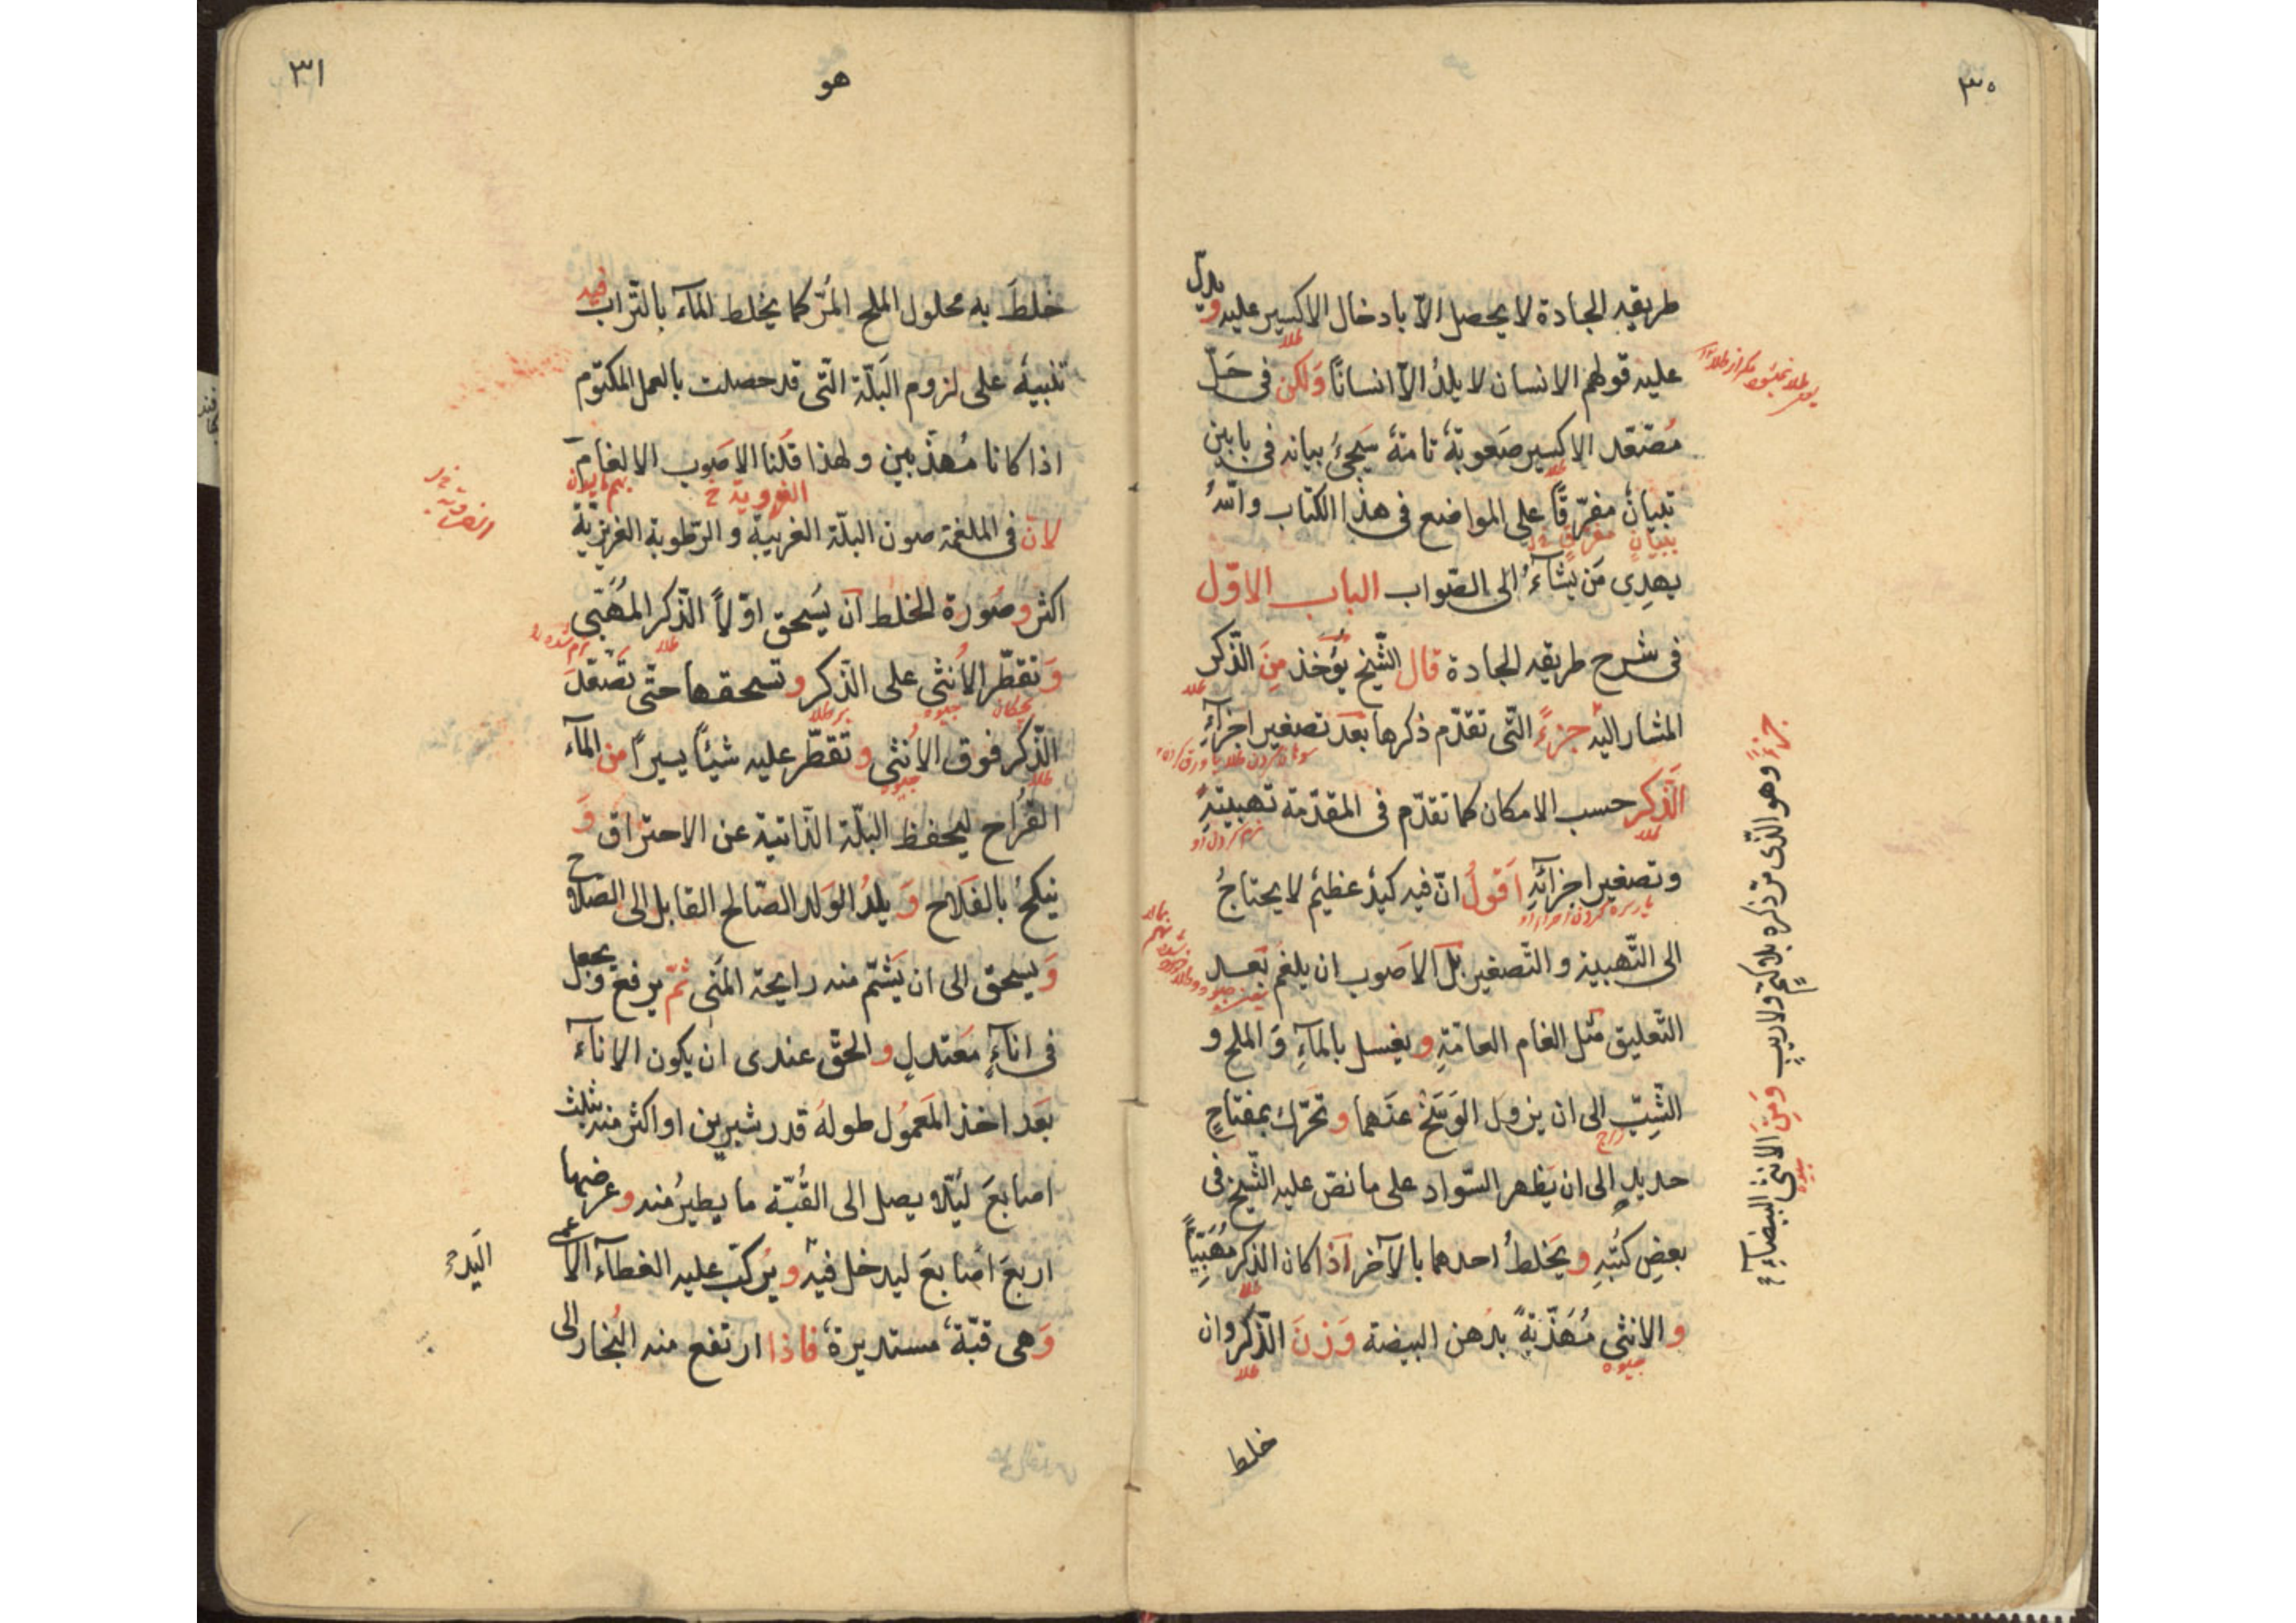 ٣٠
طريقه الجادة لا يحصل الّا بادخال الاكسير عليه و يدلّ
عليه قولهم الانسان لا يلدُ الّا انسانًا وَلكن فى حَلّ
مُنعقد الاكسير صَعوبةٌ تامةٌ سَيجئُ بيانه فى بابين
تبيانٌ مفرّقًا على المواضع فى هذا الكتاب والله
يهدِي مَن يَشآءُ الى الصّواب الباب الاوّل
فى شرح طريقه الجادة قال الشّيخ يُؤخذ مِنَ الذّكر
المشار اليه جزءً الّتى تقدّم ذكرها بعد تصغير اجزآءِ
الَذّكر حسب الامكان كما تقدّم فى المقدّمة تهبيتهِ
وتصغير اجزآئهِ اَقولُ انّ فيه كيدٌ عظيمٌ لا يحتاجُ
الى التّهبية و التّصغير بَل الاَصوب ان يلغم بَعد
التّعليق مثل الغام العامّةِ و يغسل بالمآءِ وَ الملح و
الشِّبّ الى ان يزول الوَسَخ عنهما و تحرّك بمفتاحٍ
حديدٍ الى ان يَظهر السّواد على ما نصّ عليه الشّيخ فى
بعضِ كُتبِهِ و يَخلطُ احدهما بالآخر اَذا كان الذكر مُهَبّيًا
و الانثى مُهَذّبةً بدُهن البيضة وَزنَ الذّكر وان
خلط
جزءً وهو الذّى مرّ ذكره بلا كتمٍ ولا ريبٍ وَمِنَ الانثى البيضآءِ
طلا
جيوه
٣١
هو
خلطَ به محلول الملح المُرّ كما يخلط المآء بالتّراب فيه
تنبيهٌ على لزوم البَلّة الّتى قد حصلت بالعمل المكتوم
اذا كانا مُهذّبين و لهذا قلنا الاصَوب الالغام
لانّ فى الملغمة صون البلّة الغريبّة و الرّطوبة الغريزيّة
اكثر و صُورة الخلط آن يُسحق اوّلاً الذّكر المُهَبّى
وَ تقطّر الاُنثى على الذّكر و تسحقها حتّى تصّعدَ
الذّكر فوق الاُنثى و تقطّر عليه شيئًا يسيرًا من المآء
القُراح ليحفظ البَلّة الذّاتية عن الاحتراق وَ
ينكحُ بالفَلاح وَ يلدُ الوَلد الصّالح القابل الى الصّلاح
وَ يسحق الى ان يَشتمّ منه رايحة المَنى ثمّ يرفع و يجعل
فى انآءٍ مَعتدلٍ و الحقّ عندى ان يكون الانآء
بَعد اخذ المَعمُول طولهُ قدر شبرين او اكثر منه بثلث
اصابعَ لئِلّا يصل الى القُبّة ما يطيرُ منه و عرضها
اربعَ اصَابعَ ليدخل فيه و يُركّب عليه الغطآء الاعمى
وَهى قبّةٌ مستديرةٌ فاذا ارتفع منه البُخار الى
اليدُ